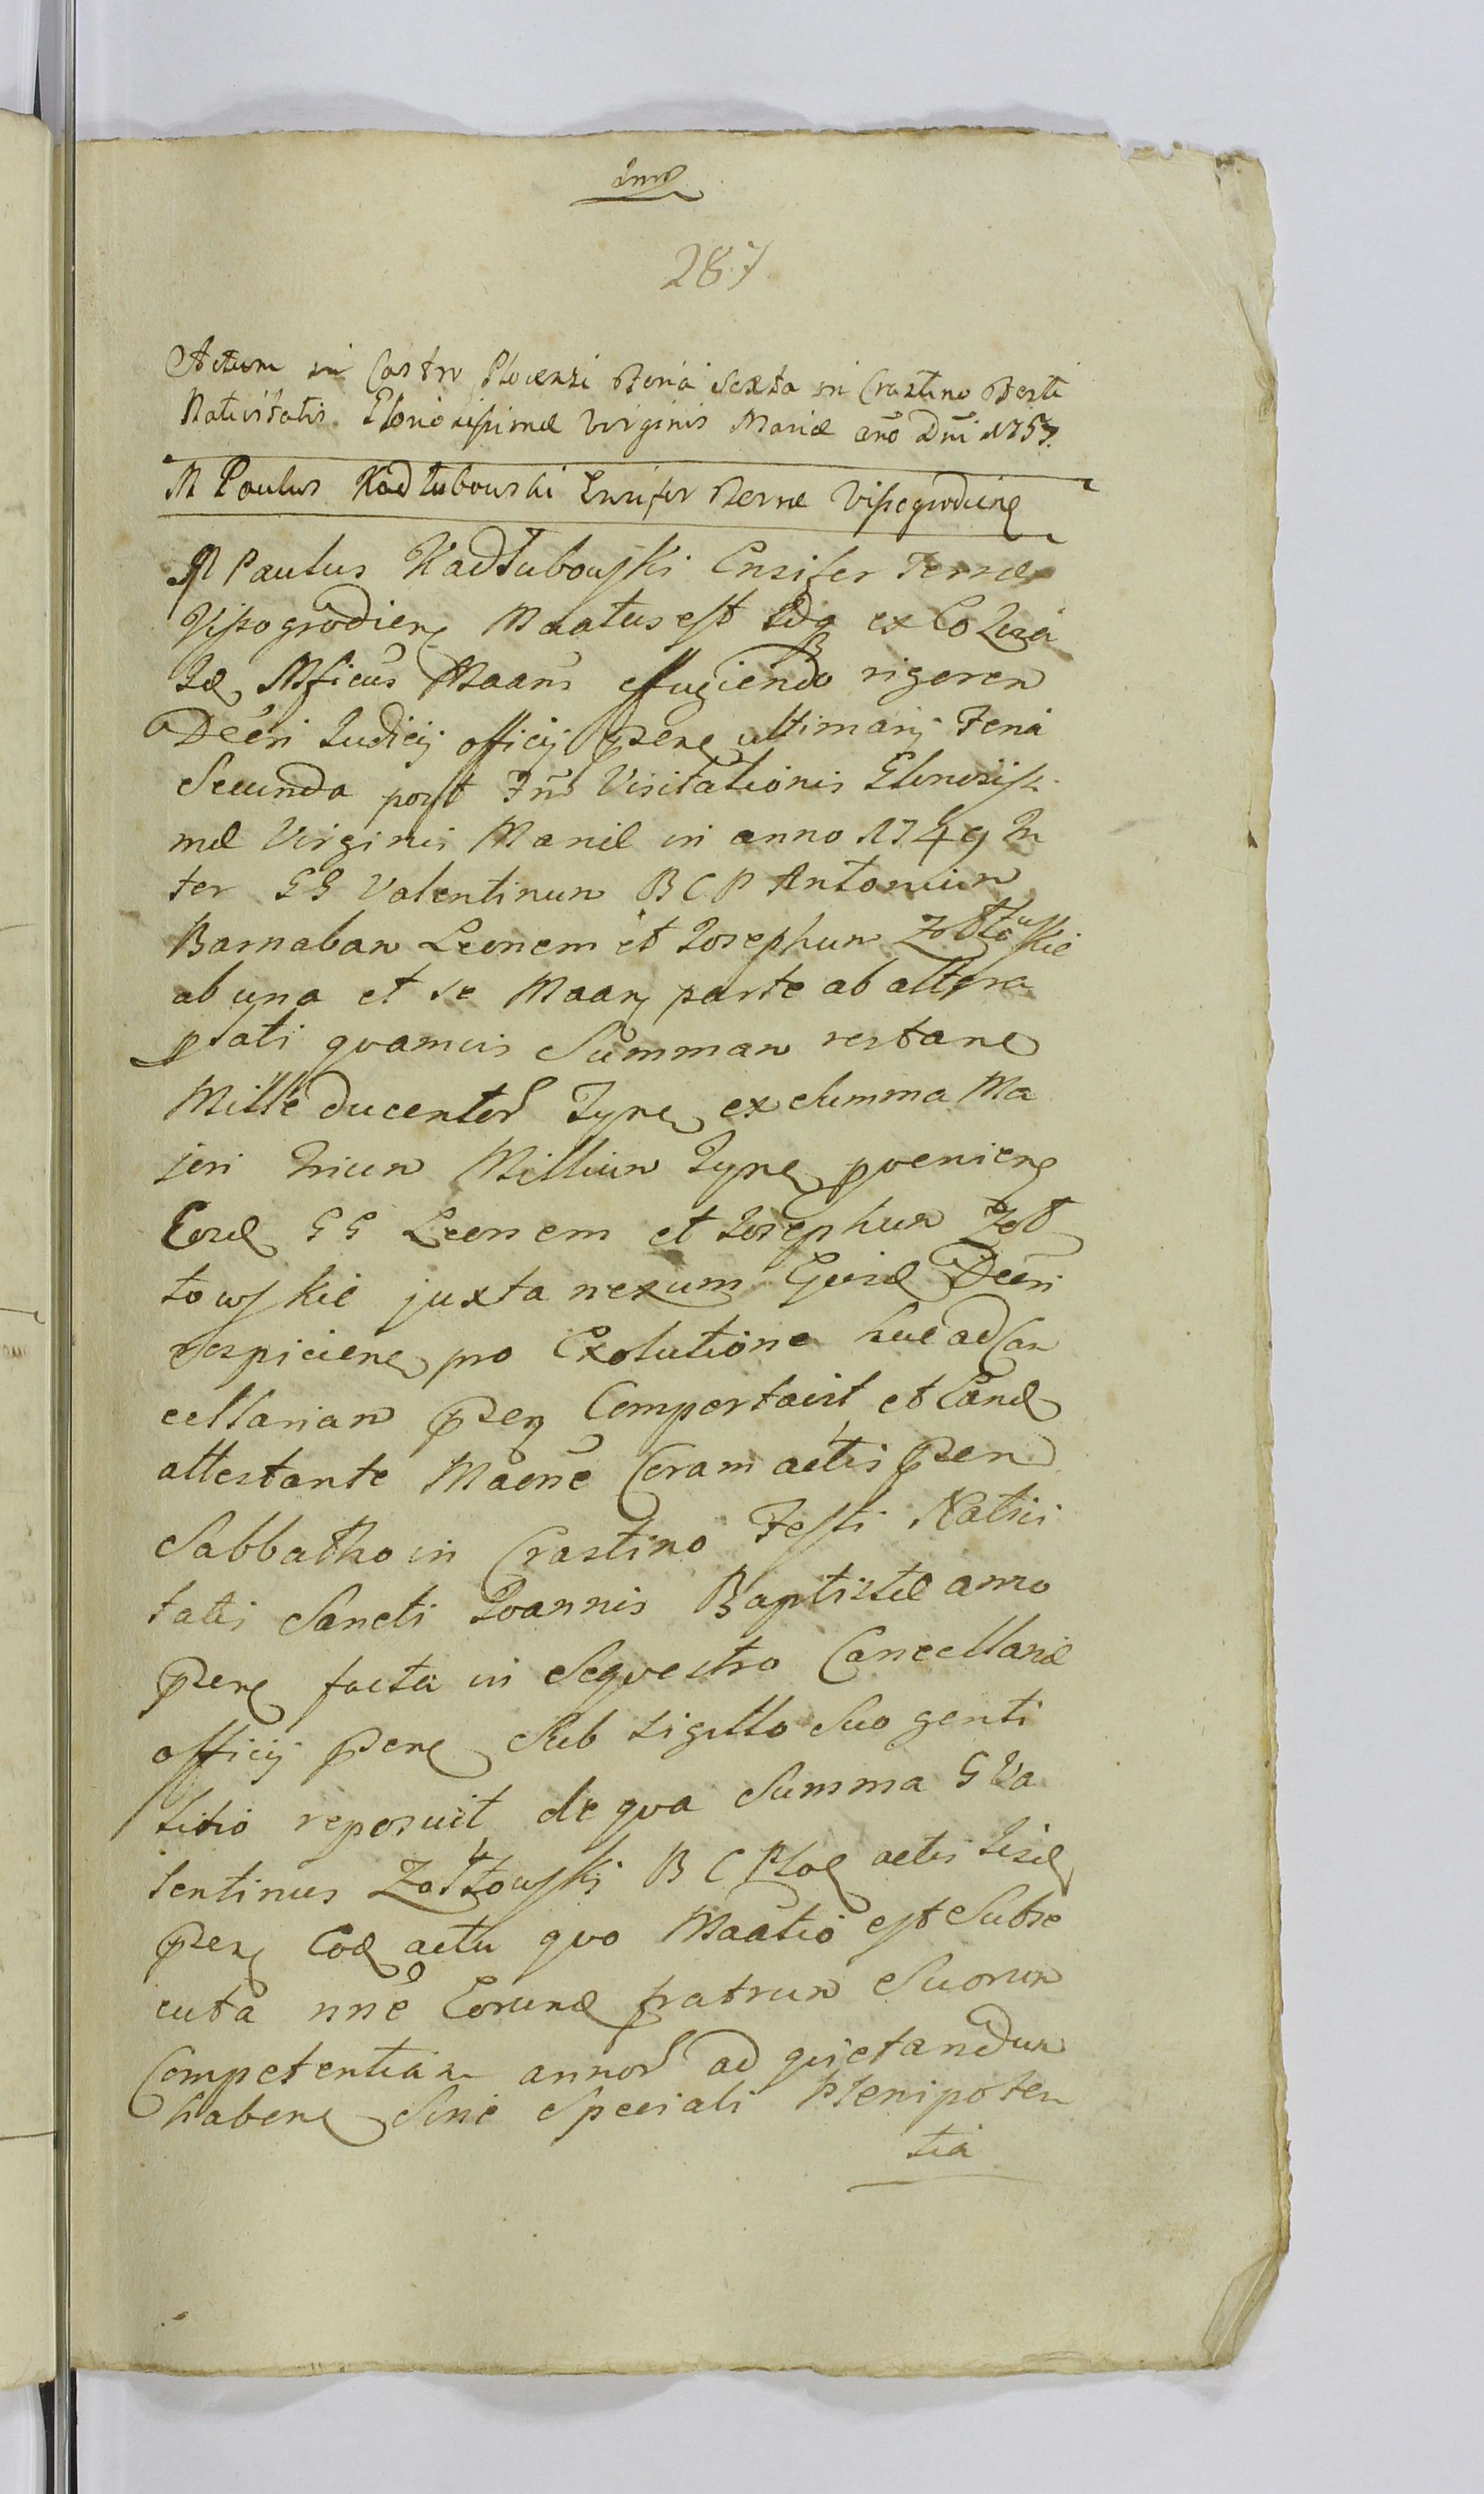 287
Actum in Castro Plocensi Feria Sexta in Crastino Festi
Nativitatis Gloriosissimæ Virginis Mariæ año Dni 1757.
M Paulus Kadłubowski Ensifer Terræ Vissogrodieñ
M Paulus Kadłubowski Ensifer Terræ
Vissogrodieñ Maatus est Idq ex Eo Quia
Id Mficus Maañs effugiendo rigorem
Decri Judicij officij pseñ ultimarij Feria
Secunda post Fñ Visitationis Gloriosiss
mæ Virginis Mariæ in anno 1749 In
ter GG Valentinum B C P Antonium
Barnabam Leonem et Josephum Zołtowskie
ab una et se Maañ parte ab altera
plati quamvis Summam restañ
Mille ducentor Tynf ex Summa Ma
jori trium Millium Tynf pvenieñ
Eosd GG Leonem et Josephum Zoł
towskie juxta nexum Ejusd Decri
respicieñ pro Exolutione huc ad Can
cellariam pseñ Comportavit et Eand
attestante Maone Coram actis pseñ
Sabbatho in Crastino Festi Nativi
tatis Sancti Joannis Baptistæ anno
pseñ facta in Sequestro Cancellariæ
officij pseñ Sub Sigillo Suo genti
litio reposuit de qua Summa G Va
lentinus Zołtowski B C Ploc actis iisd
pseñ Eod actu quo Maatio est Subse
cuta nne Eorund fratrum Suorum
Competentiam annor ad quietandum
habeñ Sine Speciali Plenipoten
tia